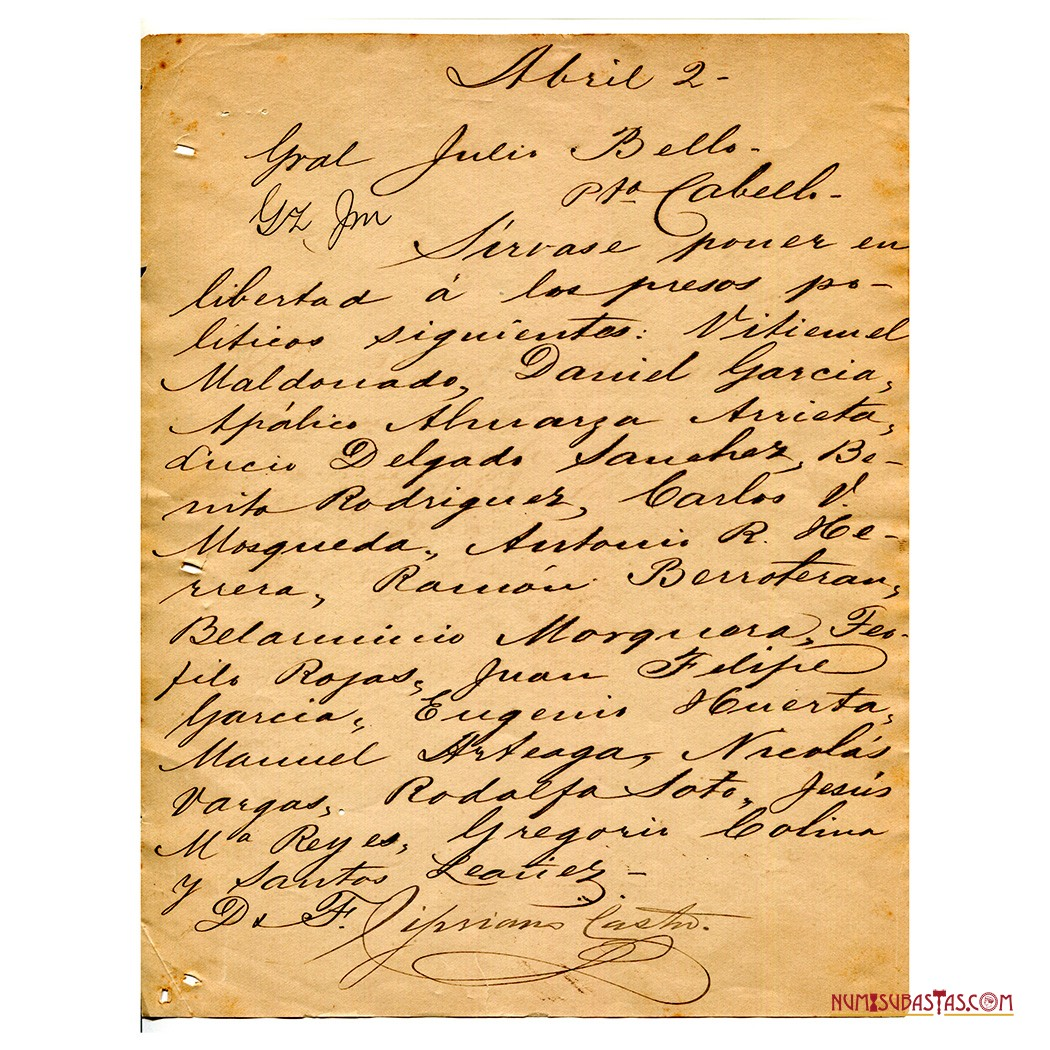 Abril 2-
Gral Julio Bello-
Pto Cabello-
Gz Jm
Sírvase poner en
libertad á los presos po-
líticos siguientes: Vitiemel
Maldonado, Daniel Garcia,
Apólico Almarza Arrieta,
Lucio Delgado Sanchez, Be-
nito Rodriguez, Carlos V.
Mosqueda, Antonio R. He-
rrera, Ramón Berroteran,
Belarminio Morquera, Feo-
filo Rojas, Juan Felipe
Garcia, Eugenio Huerta,
Manuel Arteaga, Nicolás
Vargas, Rodolfo Soto, Jesús
Mª Reyes, Gregorio Colina
y Santos Leañez-
D & F. Cipriano Castro.
NUMISUBASTAS.COM